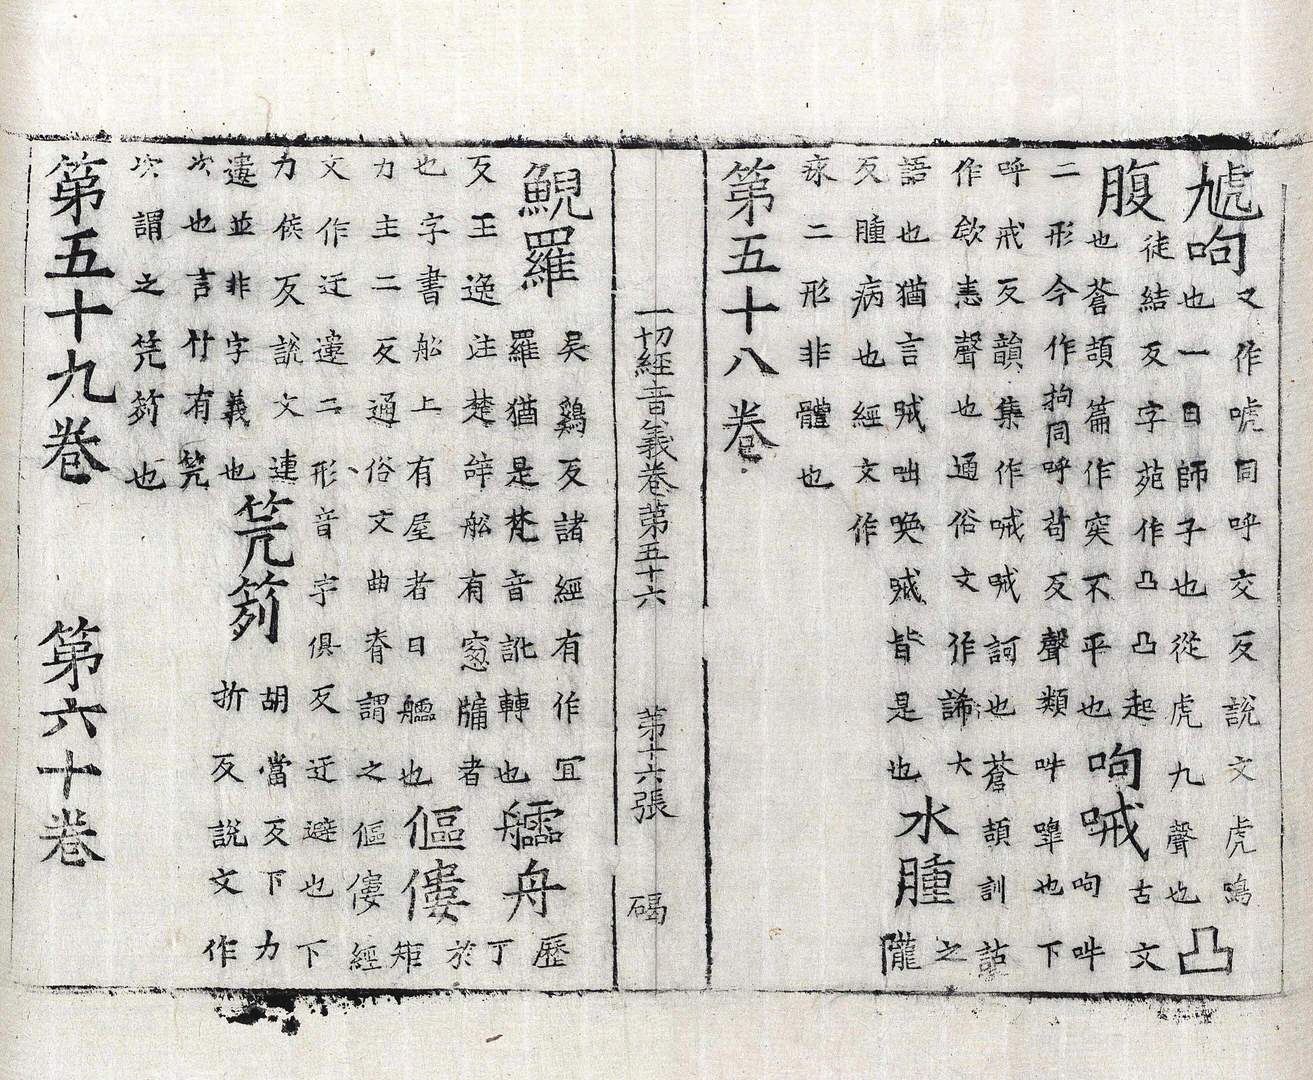 虓呴又作唬同呼交反說文虎鳴
也一曰師子也從虎九聲也凸
腹徒結反字苑作凸凸起古文
也蒼頡篇作突不平也呴㖑呴吽
二形今作拘同呼苟反聲類吽㗱也下
呼戒反韻集作㖑㖑訶也蒼頡訓詁
作欬恚聲也通俗文作諦大
語也猶言㖑咄喚㖑皆是也水腫之隴
反腫病也經文作
瘃二形非體也
第五十八卷
一切經音義卷第五十六 第十六張 碣
鯢羅吳鷄反諸經有作冝
羅猶是梵音訛轉也艫舟歷丁
反王逸注楚辝舩有窓牖者
也字書舩上有屋者曰艫也傴僂於矩
力主二反通俗文曲脊謂之傴僂經
文作迂遱二形音宇俱反迂避也下
力侯反說文連
遱並非字義也笐䇟胡當反下力
折反說文作
次也言竹有笐
次謂之笐䇟也
第五十九卷 第六十卷